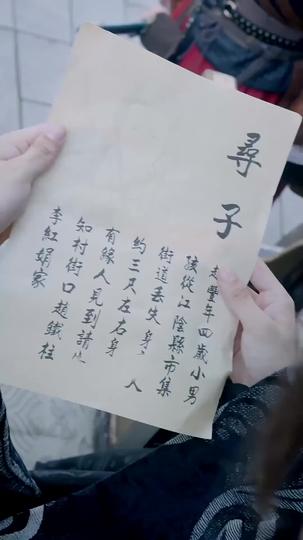 尋子
豐年四歲小男
孩從江陰縣市集
街道丟失身
約三尺左右身 人
有緣人見到請
知村街口趙鐵柱
李紅娟家